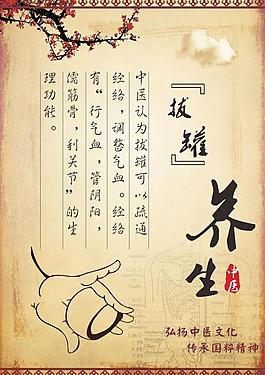 『拔罐』
养生
中医
中医认为拔罐可以疏通
经络，调整气血。经络
有“行气血，营阴阳，
儒筋骨，利关节”的生
理功能。
弘扬中医文化
传承国粹精神